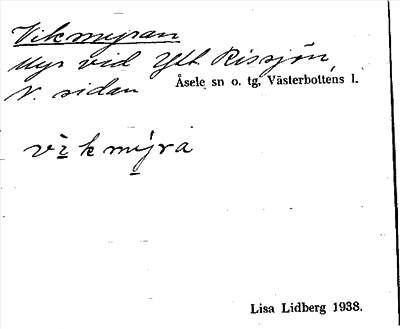 Vikmyran
Myr vid Ytt. Rissjön,
N. sidan
Åsele sn o. tg, Västerbottens l.
vìkmýra
Lisa Lidberg 1938.